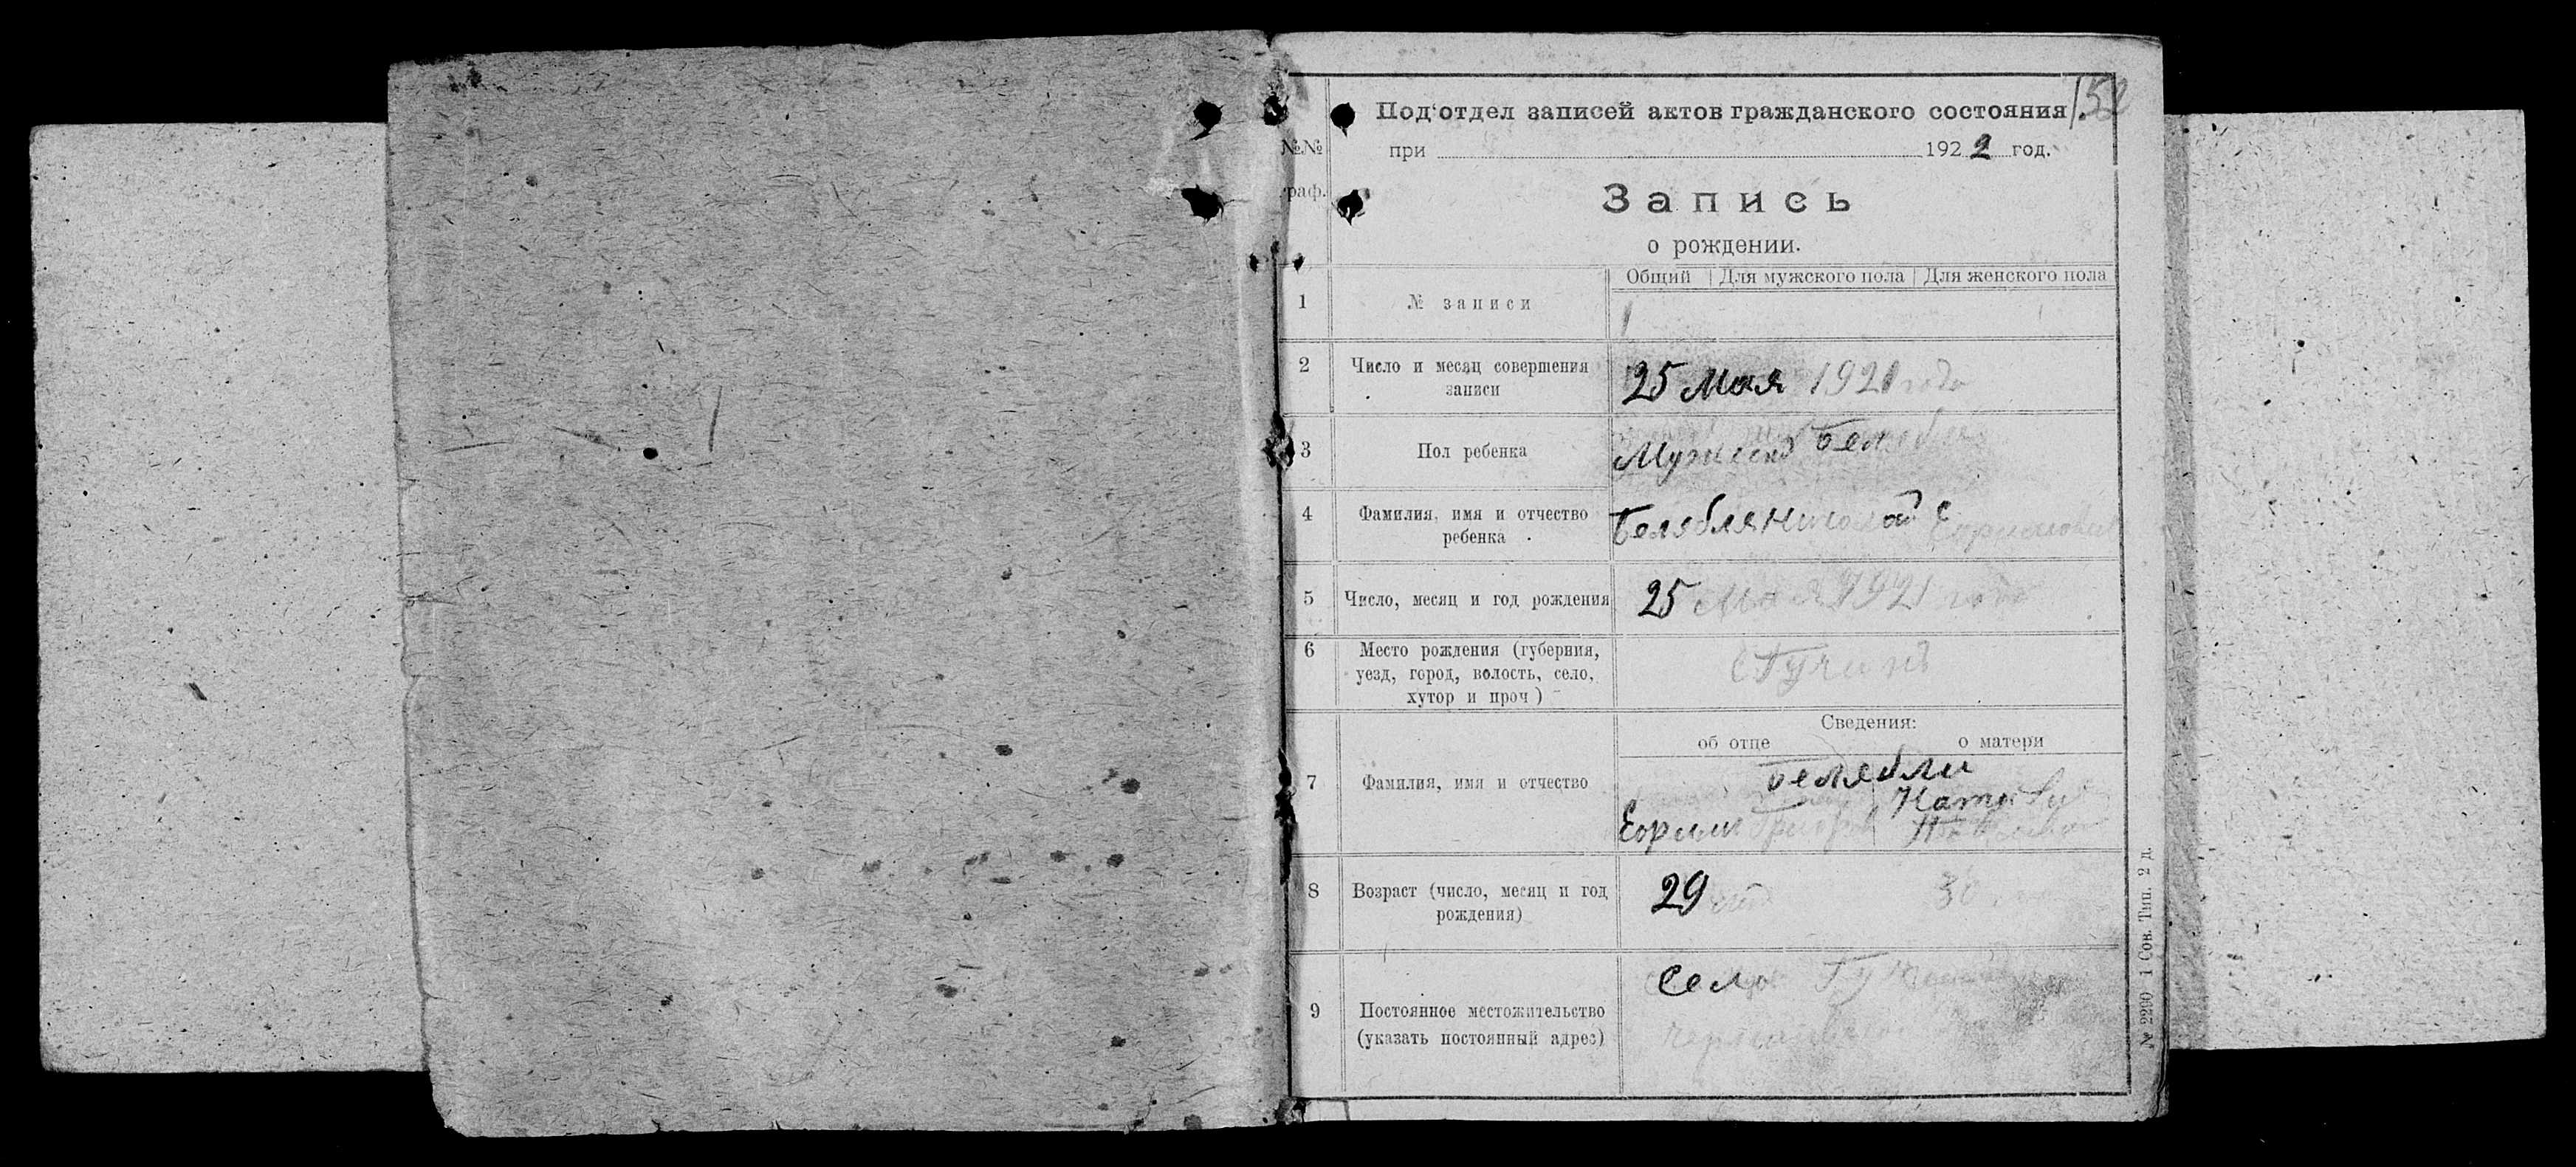 152
Под'отдел записей актов гражданского состояния
№№ при 1922 год.
раф.
Запись
о рождении.
Общий Для мужского пола Для женского пола
1 № записи 1
2 Число и месяц совершения 25 Мая 1921 года
записи
3 Пол ребенка Мужеский
4 Фамилия, имя и отчество Белябля Николай
ребенка
5 Число, месяц и год рождения 25 Мая 1921 года
6 Место рождения (губерния,
уезд, город, волость, село,
хутор и проч)
Сведения:
об отце о матери
7 Фамилия, имя и отчество Белябли
8 Возраст (число, месяц и год 29 лет 30
рождения)
Село
9 Постоянное местожительство
(указать постоянный адрес)
№ 2290 1 Сов. Тип. 2 д.